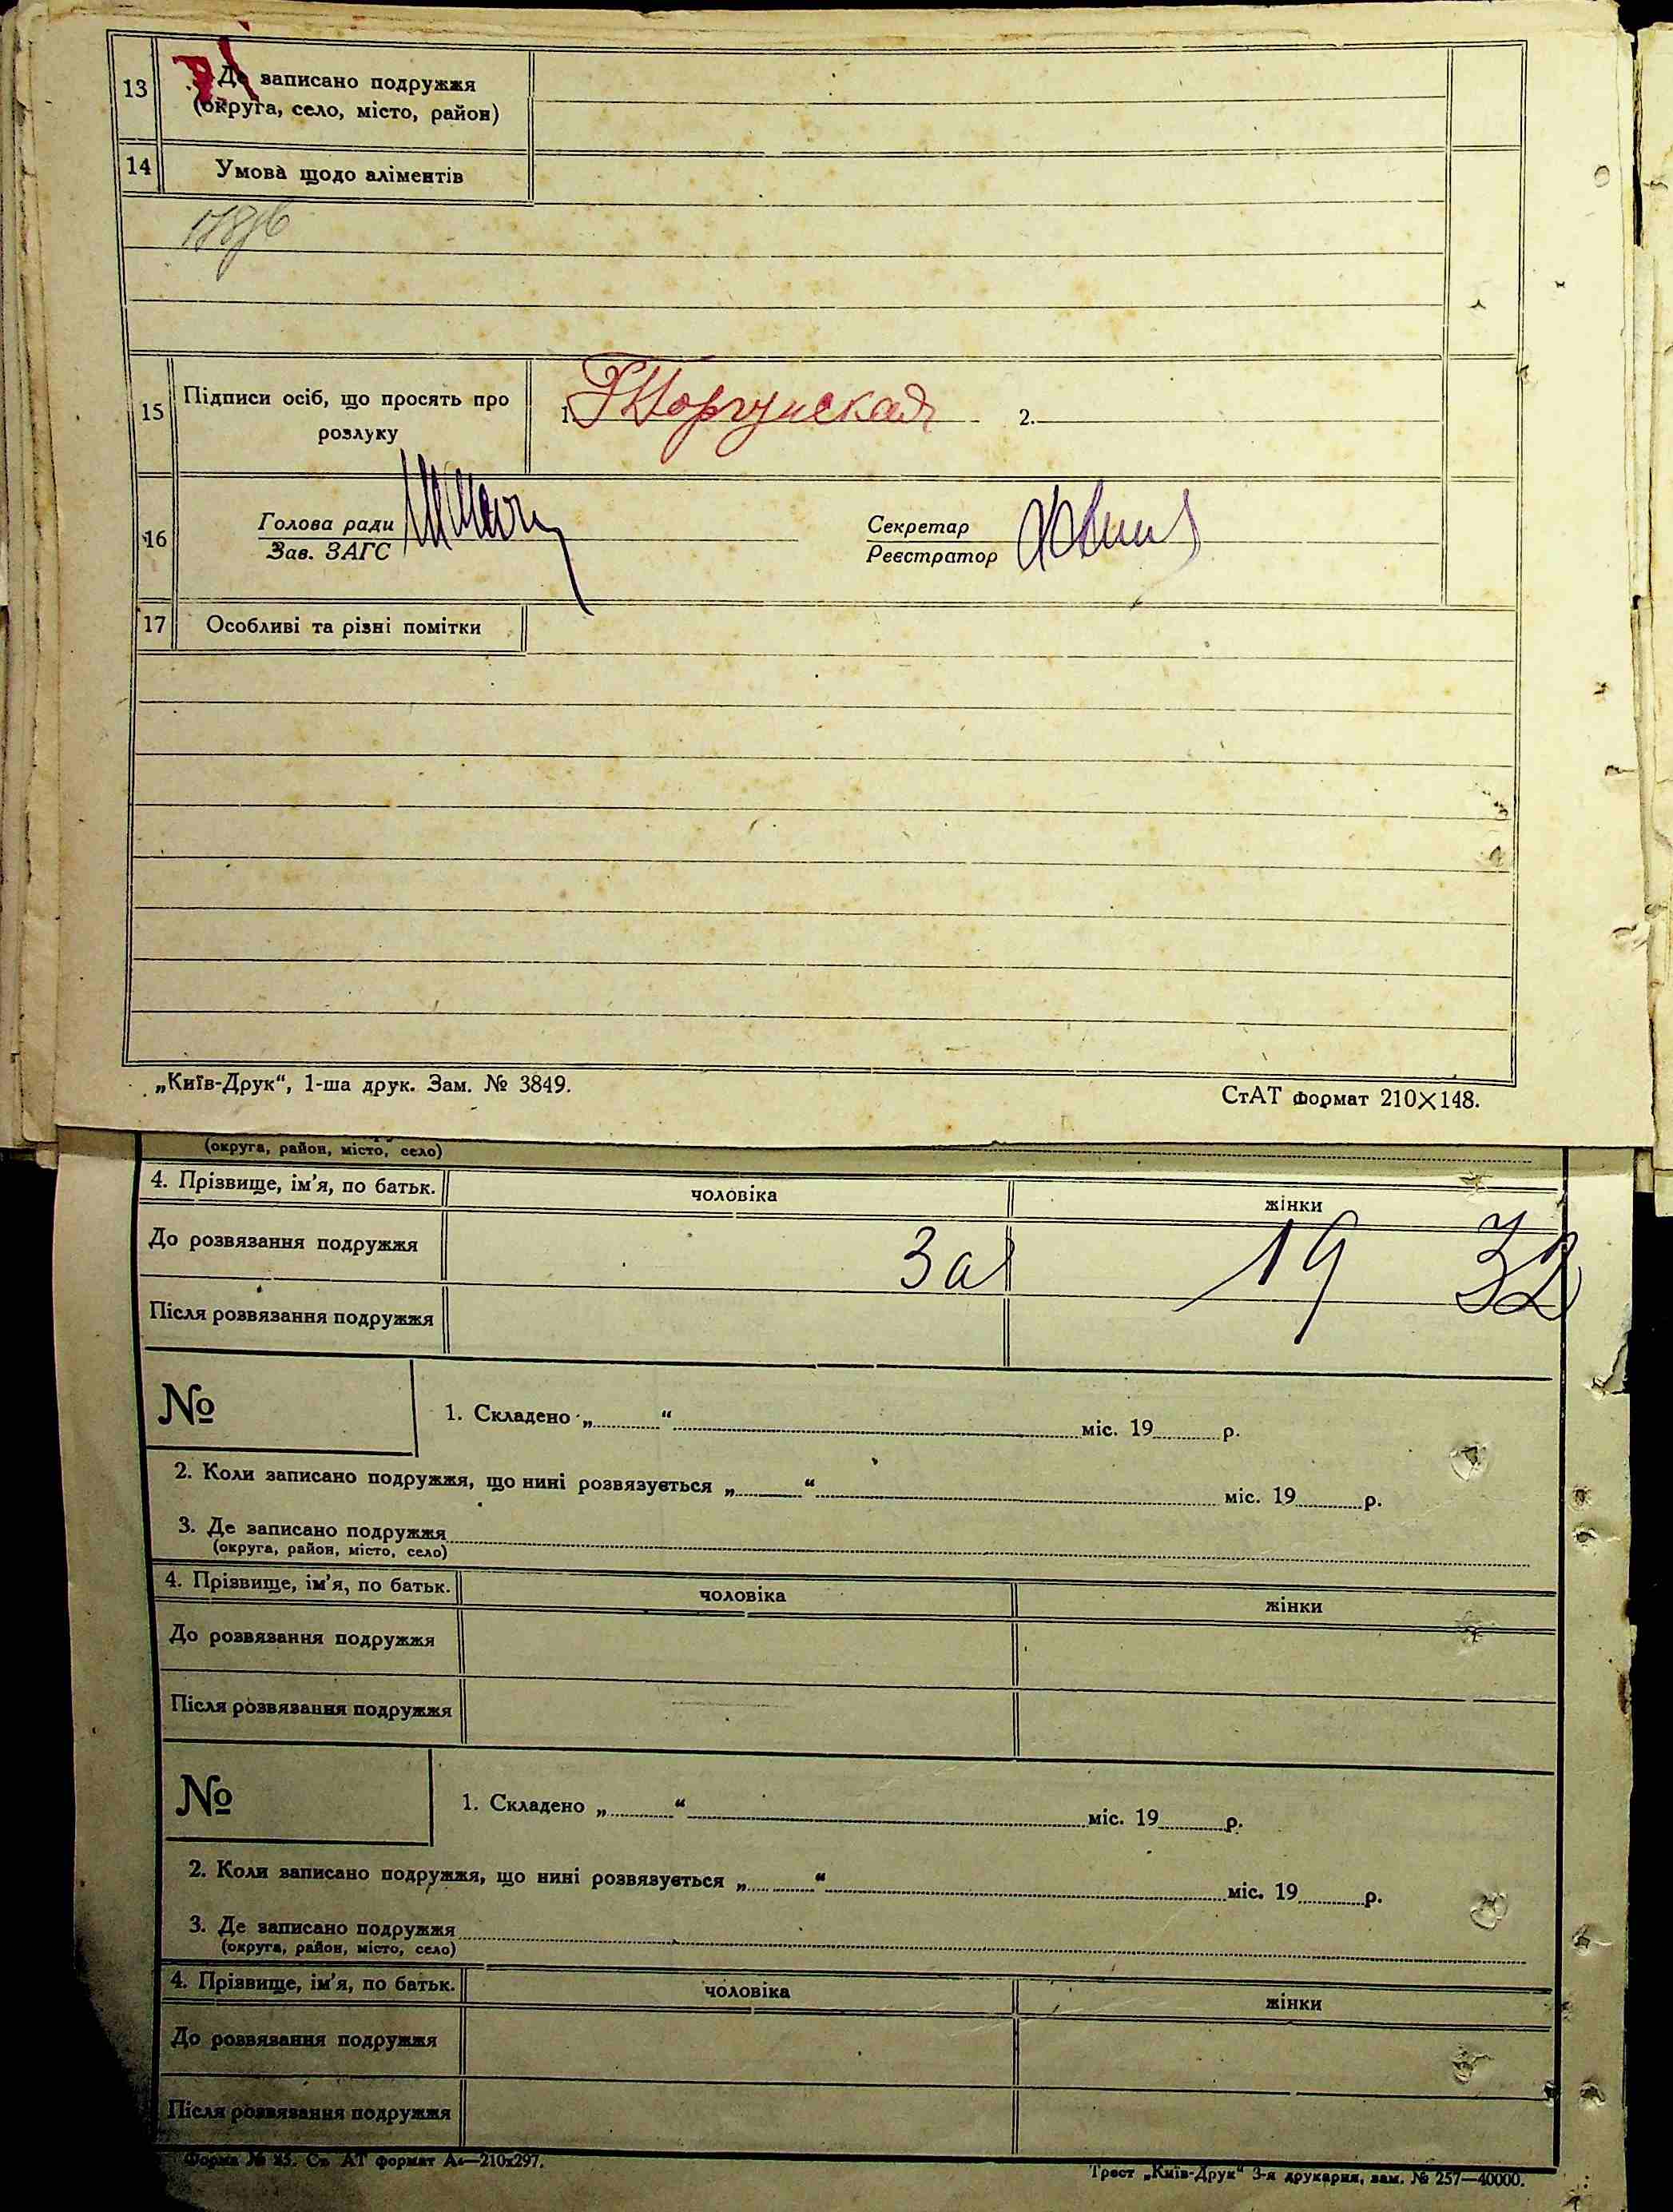 13 Де записано подружжя
(округа, село, місто, район)
14 Умова щодо аліментів
15 Підписи осіб, що просять про розлуку 1. 2.
16 Голова ради
Зав. ЗАГС
Секретар
Реєстратор
17 Особливі та різні помітки
„Київ-Друк“, 1-ша друк. Зам. № 3849.
СтАТ формат 210×148.
(округа, район, місто, село)
4. Прізвище, ім'я, по батьк. чоловіка жінки
До розвязання подружжя За 19 32
Після розвязання подружжя
№ 1. Складено „ “ міс. 19 р.
2. Коли записано подружжя, що нині розвязується „ “ міс. 19 р.
3. Де записано подружжя
(округа, район, місто, село)
4. Прізвище, ім'я, по батьк. чоловіка жінки
До розвязання подружжя
Після розвязання подружжя
№ 1. Складено „ “ міс. 19 р.
2. Коли записано подружжя, що нині розвязується „ “ міс. 19 р.
3. Де записано подружжя
(округа, район, місто, село)
4. Прізвище, ім'я, по батьк. чоловіка жінки
До розвязання подружжя
Після розвязання подружжя
Форма № 25. Ст. АТ формат А₄—210x297.
Трест „Київ-Друк“ 3-я друкарня, зам. № 257—40000.